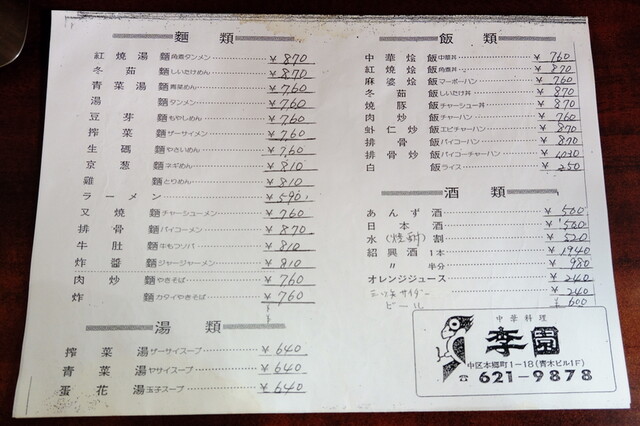 麵 類
紅燒湯麵 角煮タンメン ¥870
冬茹麵 しいたけめん ¥870
青菜湯麵 青菜めん ¥760
湯麵 タンメン ¥760
豆芽麵 もやしめん ¥760
搾菜麵 ザーサイメン ¥760
生碼麵 やさいめん ¥760
京葱麵 ネギめん ¥810
雞麵 とりめん ¥810
ラーメン ¥590
叉燒麵 チャーシューメン ¥760
排骨麵 パイコーメン ¥870
牛肚麵 牛もツソバ ¥810
炸醬麵 ジャージャーメン ¥810
肉炒麵 やきそば ¥760
炸麵 カタイやきそば ¥760
湯 類
搾菜湯 ザーサイスープ ¥640
青菜湯 ヤサイスープ ¥640
蛋花湯 玉子スープ ¥640
飯 類
中華烩飯 中華丼 ¥760
紅燒烩飯 角煮丼 ¥870
麻婆烩飯 マーボーハン ¥760
冬茹飯 しいたけ丼 ¥870
燒豚飯 チャーシュー丼 ¥870
肉炒飯 チャーハン ¥760
蚪仁炒飯 エビチャーハン ¥870
排骨飯 パイコーハン ¥870
排骨炒飯 パイコーチャーハン ¥1030
白飯 ライス ¥250
酒 類
あんず酒 ¥500
日本酒 ¥500
水(焼酎)割 ¥520
紹興酒 1本 ¥1940
〃 半分 ¥980
オレンジジュース ¥240
三ツ矢サイダー ¥240
ビール ¥600
中華料理
李園
中区本郷町1-18(青木ビル1F)
☎621-9878